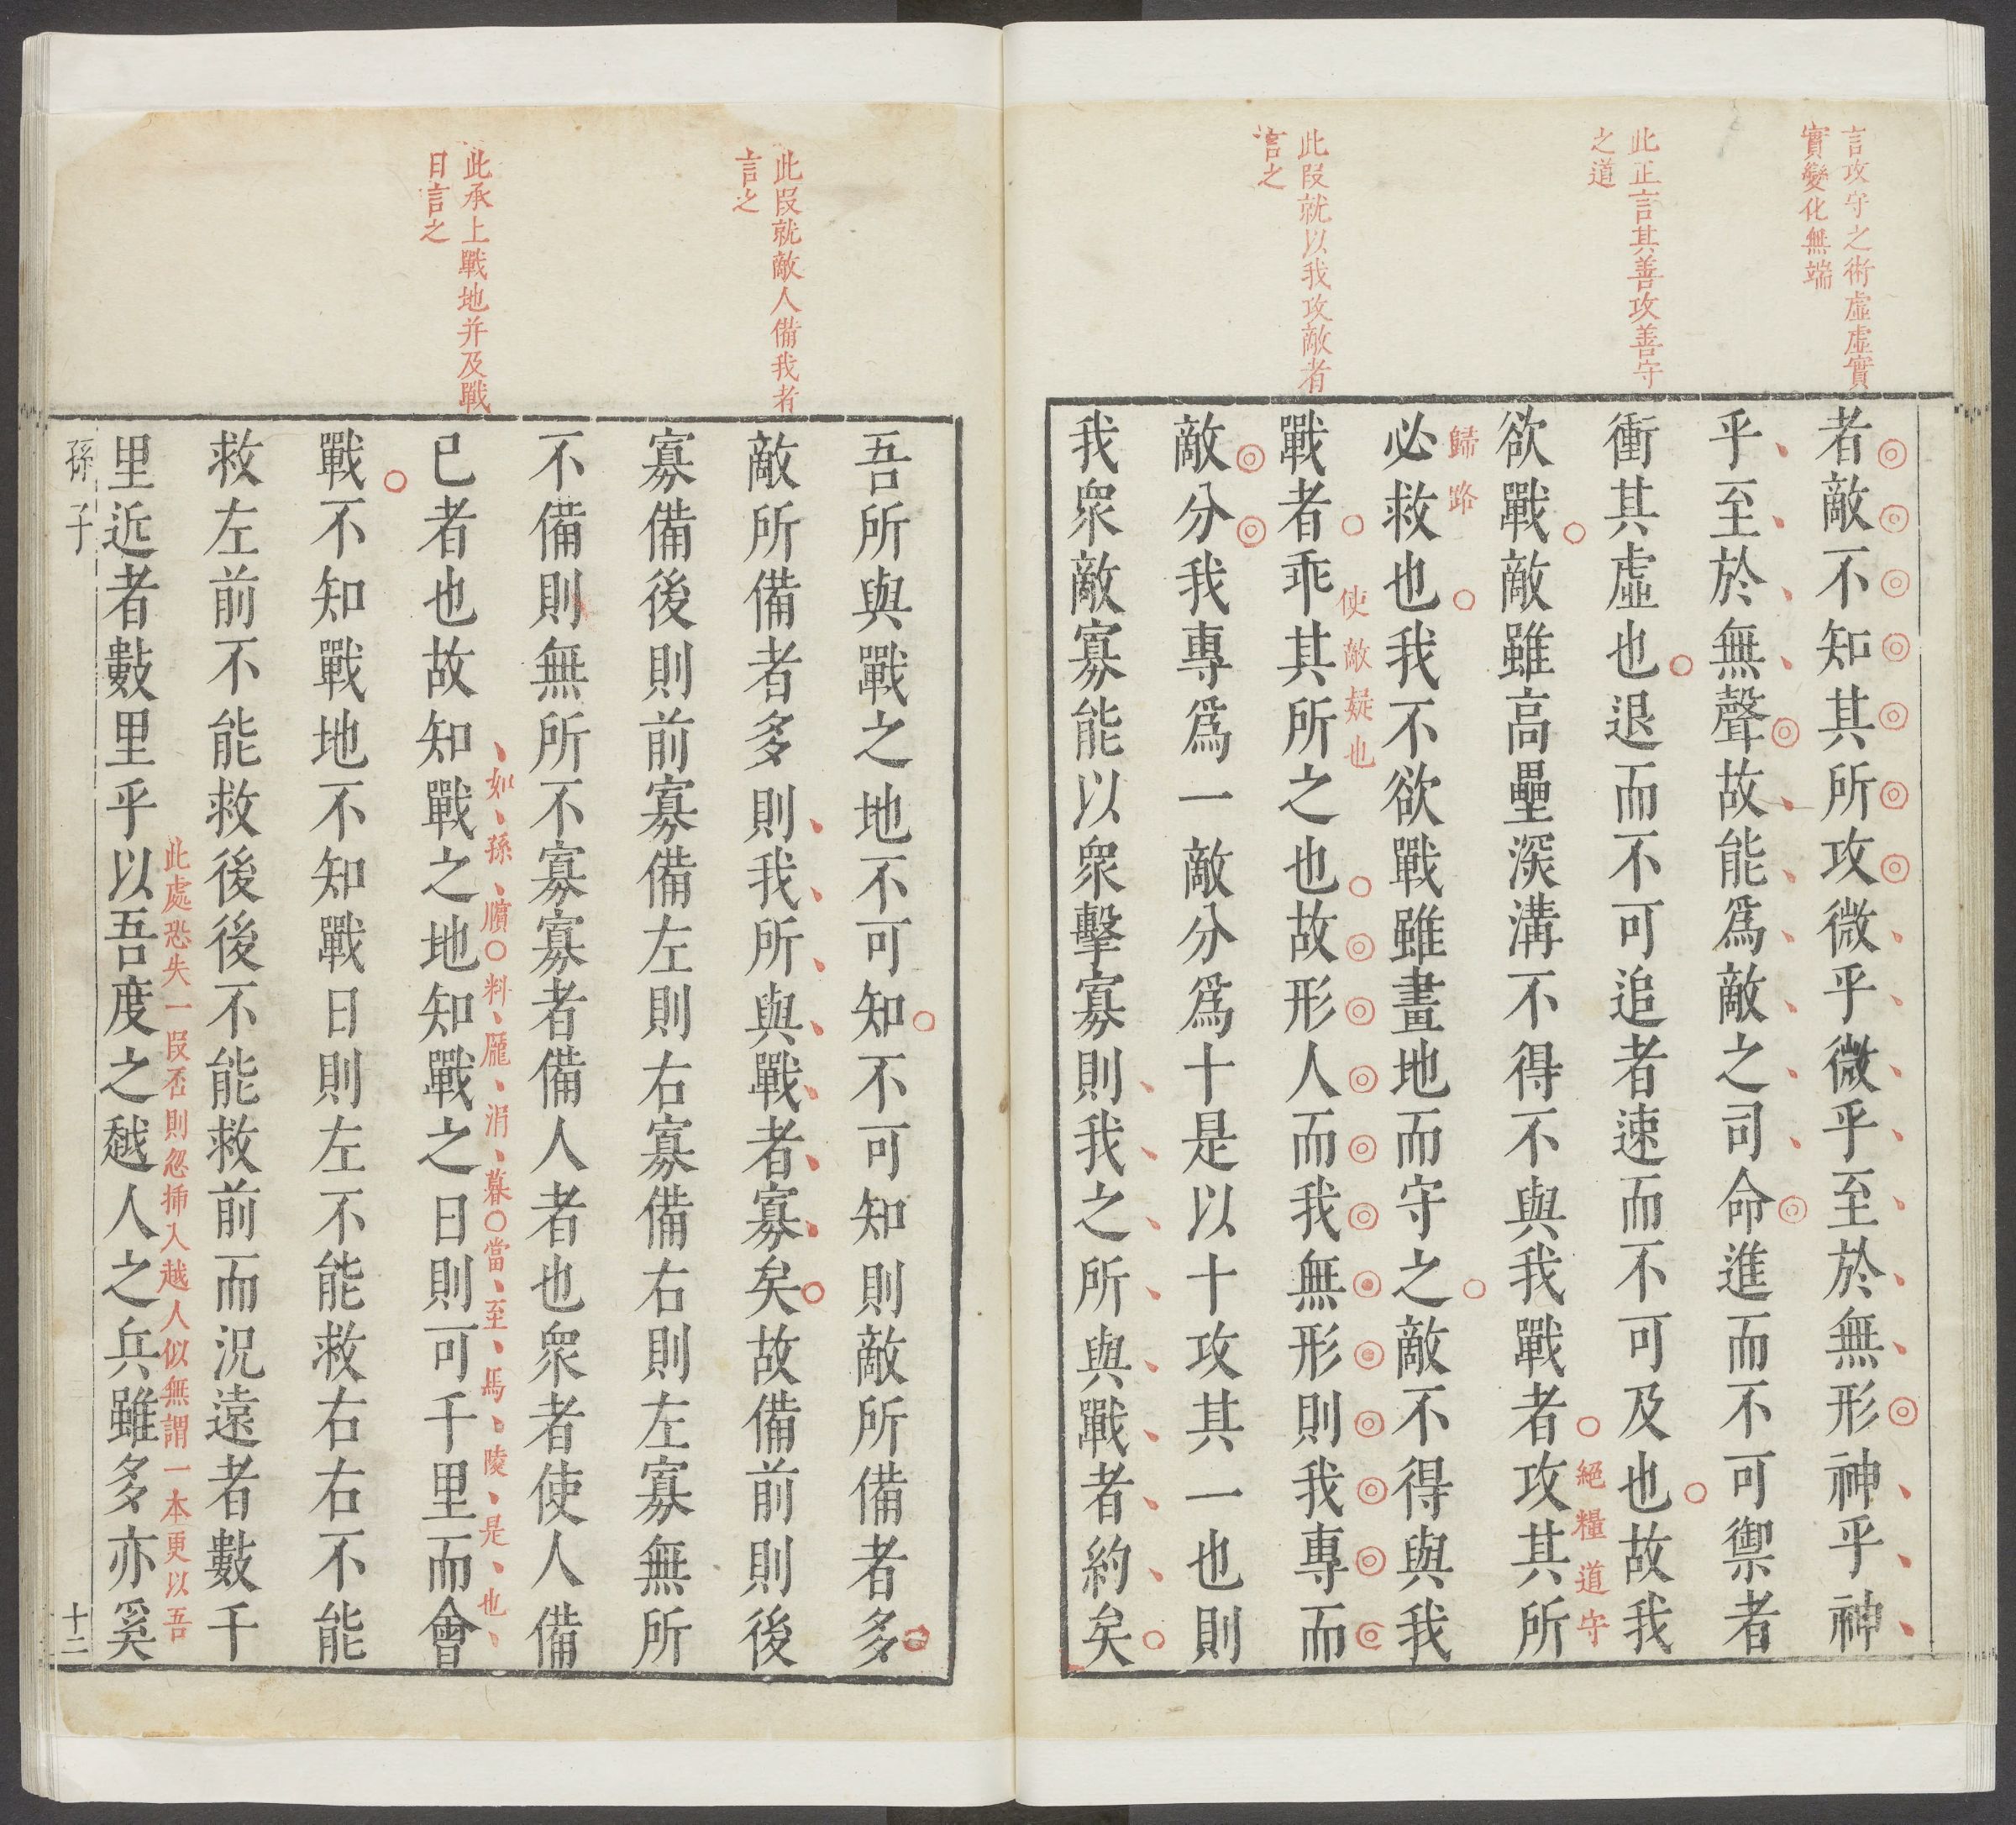 言攻守之術虛虛實
實變化無端
此正言其善攻善守
之道
此段就以我攻敵者
言之
者敵不知其所攻微乎微乎至於無形神乎神
乎至於無聲故能爲敵之司命進而不可禦者
衝其虛也退而不可追者速而不可及也故我
欲戰敵雖高壘深溝不得不與我戰者攻其所
絕糧道守
歸路
必救也我不欲戰雖畫地而守之敵不得與我
戰者乖其所之也故形人而我無形則我專而
使敵疑也
敵分我專爲一敵分爲十是以十攻其一也則
我眾敵寡能以眾擊寡則我之所與戰者約矣
此段就敵人備我者
言之
此承上戰地并及戰
日言之
吾所與戰之地不可知不可知則敵所備者多
敵所備者多則我所與戰者寡矣故備前則後
寡備後則前寡備左則右寡備右則左寡無所
不備則無所不寡寡者備人者也眾者使人備
己者也故知戰之地知戰之日則可千里而會
如孫臏料龐涓暮當至馬陵是也
戰不知戰地不知戰日則左不能救右右不能
救左前不能救後後不能救前而況遠者數千
里近者數里乎以吾度之越人之兵雖多亦奚
此處恐失一段否則忽插入越人似無謂一本更以吾
孫子
十二